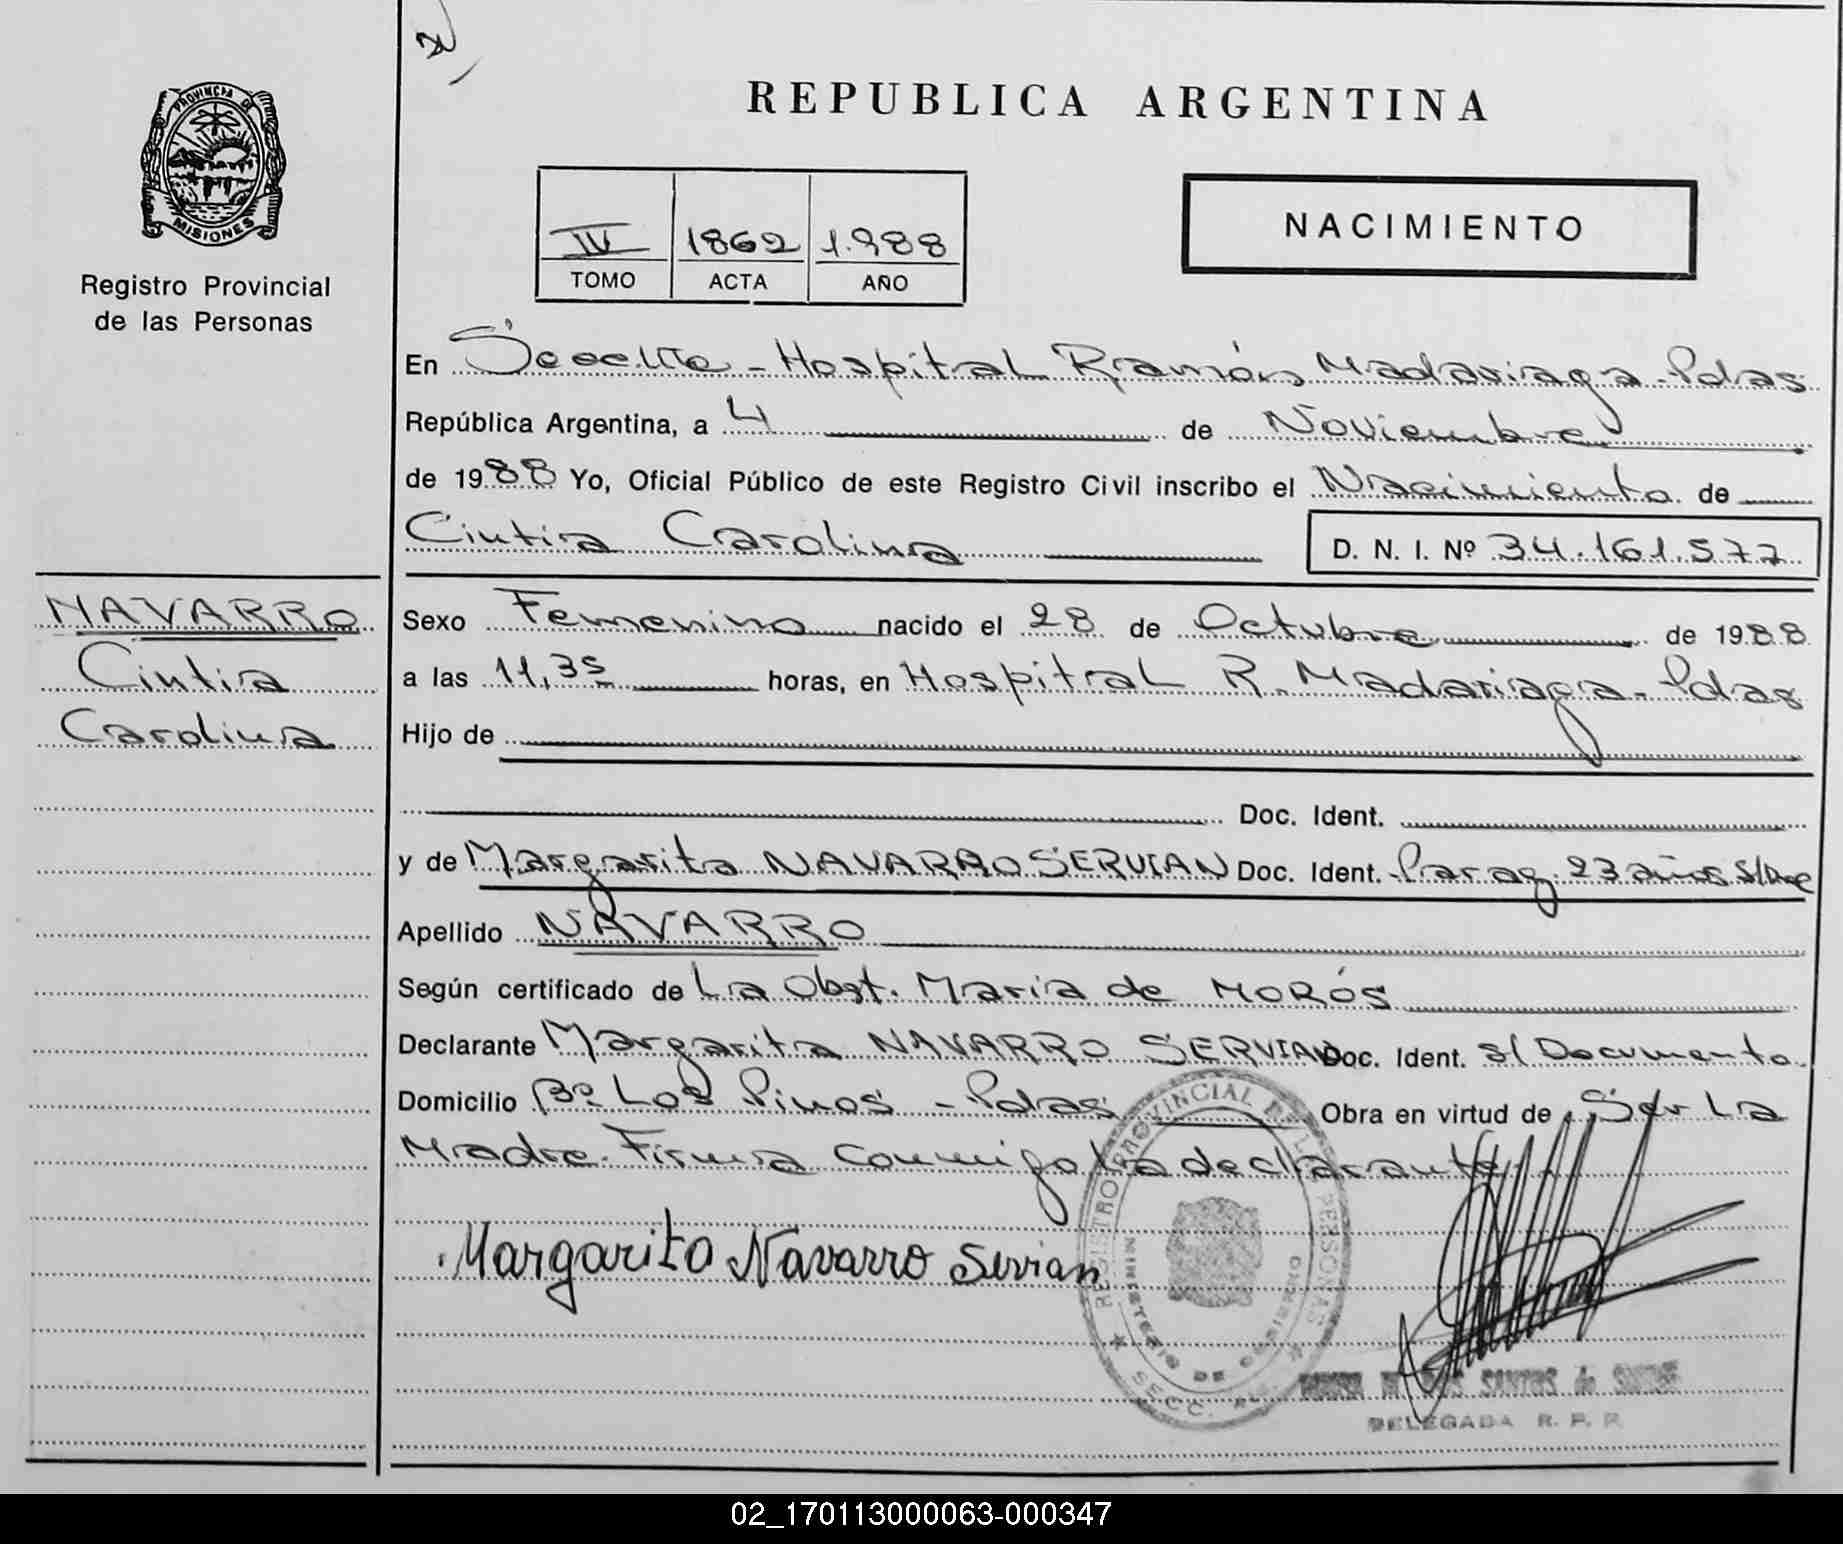 PROVINCIA DE
MISIONES
Registro Provincial
de las Personas
REPUBLICA ARGENTINA
NACIMIENTO
IV 1862 1.988
TOMO ACTA AÑO
En Seccilla - Hospital Ramón Madariaga - Pdas
República Argentina, a 4 de Noviembre
de 1988 Yo, Oficial Público de este Registro Civil inscribo el Nacimiento de
Cintia Carolina D. N. I. Nº 34.161.577
NAVARRO
Cintia
Carolina
Sexo Femenino nacido el 28 de Octubre de 1988
a las 11,35 horas, en Hospital R. Madariaga - Pdas
Hijo de
Doc. Ident.
y de Margarita NAVARRO SERVIAN Doc. Ident. Parag. 23 años S/Doc
Apellido NAVARRO
Según certificado de La Obst. Maria de MORÓS
Declarante Margarita NAVARRO SERVIAN Doc. Ident. s/ Documento
Domicilio Bº Los Pinos - Pdas Obra en virtud de Ser La
Madre. Firma conmigo la declarante
Margarita Navarro Servian
REGISTRO PROVINCIAL DE LAS PERSONAS
MINISTERIO DE GOBIERNO
SECC.
SANTOS de
DELEGADA R. P. P.
02_170113000063-000347